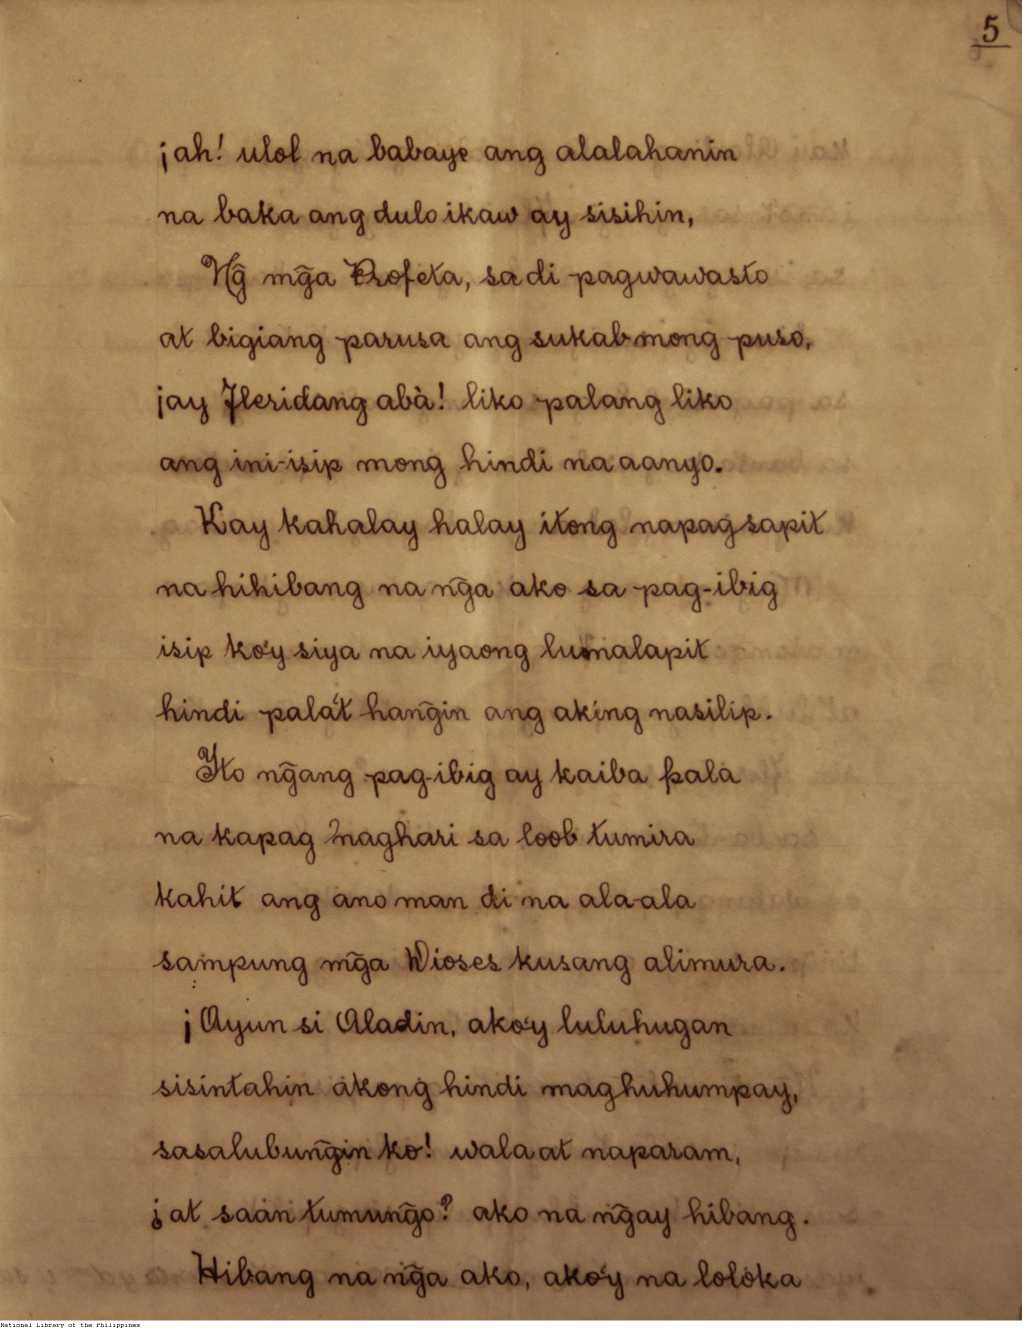 5
¡ah! ulol na babaye ang alalahanin
na baka ang dulo ikaw ay sisihin,
Ng̃ mg̃a Profeta, sa di pagwawasto
at bigiang parusa ang sukab mong puso,
¡ay Fleridang abà! liko palang liko
ang ini-isip mong hindi na aanyo.
Kay kahalay halay itong napagsapit
na hihibang na ng̃a ako sa pag-ibig
isip ko'y siya na iyaong lumalapit
hindi pala't hang̃in ang aking nasilip.
Yto ng̃ang pag-ibig ay kaiba pala
na kapag naghari sa loob tumira
kahit ang ano man di na ala-ala
sampung mg̃a Dioses kusang alimura.
¡Ayun si Aladin, ako'y luluhugan
sisintahin akong hindi maghuhumpay,
sasalubung̃in ko! wala at naparam,
¿at saan tumung̃o? ako na ng̃ay hibang.
Hibang na ng̃a ako, ako'y na loloka
National Library of the Philippines